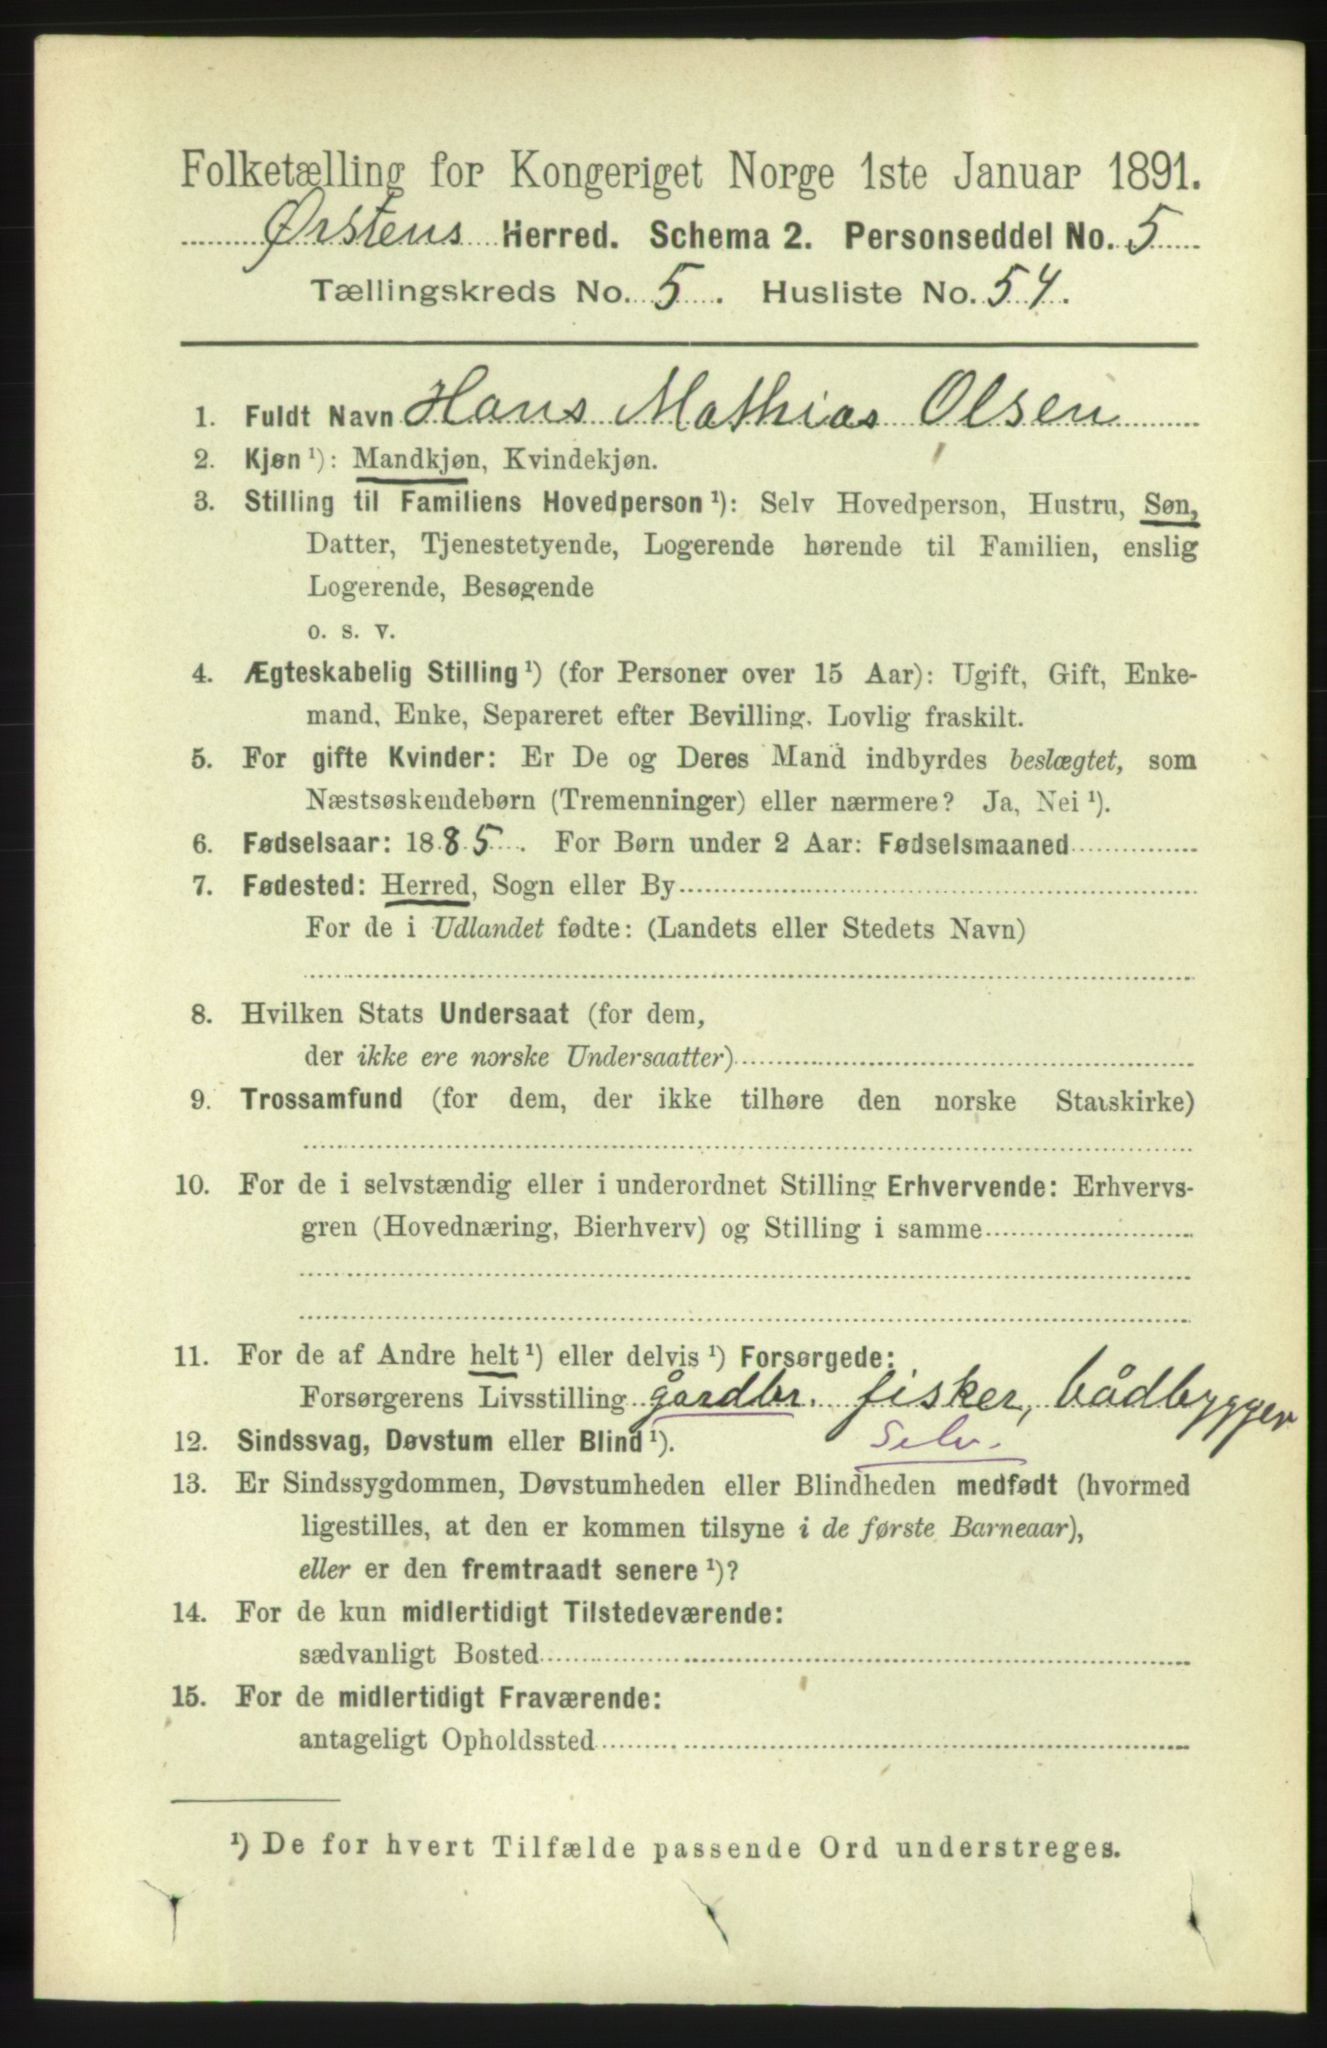 Folketælling for Kongeriget Norge 1ste Januar 1891.
Ørstens Herred. Schema 2. Personseddel No. 5
Tællingskreds No. 5. Husliste No. 54.
1. Fuldt Navn Hans Mathias Olsen
2. Kjøn ¹): Mandkjøn, Kvindekjøn.
3. Stilling til Familiens Hovedperson ¹): Selv Hovedperson, Hustru, Søn,
Datter, Tjenestetyende, Logerende hørende til Familien, enslig
Logerende, Besøgende
o. s. v.
4. Ægteskabelig Stilling ¹) (for Personer over 15 Aar): Ugift, Gift, Enke-
mand, Enke, Separeret efter Bevilling. Lovlig fraskilt.
5. For gifte Kvinder: Er De og Deres Mand indbyrdes beslægtet, som
Næstsøskendebørn (Tremenninger) eller nærmere? Ja, Nei ¹).
6. Fødselsaar: 1885. For Børn under 2 Aar: Fødselsmaaned
7. Fødested: Herred, Sogn eller By
For de i Udlandet fødte: (Landets eller Stedets Navn)
8. Hvilken Stats Undersaat (for dem,
der ikke ere norske Undersaatter)
9. Trossamfund (for dem, der ikke tilhøre den norske Statskirke)
10. For de i selvstændig eller i underordnet Stilling Erhvervende: Erhvervs-
gren (Hovednæring, Bierhverv) og Stilling i samme
11. For de af Andre helt ¹) eller delvis ¹) Forsørgede:
Forsørgerens Livsstilling gårdbr. fisker, bådbygger
12. Sindssvag, Døvstum eller Blind ¹). Selv.
13. Er Sindssygdommen, Døvstumheden eller Blindheden medfødt (hvormed
ligestilles, at den er kommen tilsyne i de første Barneaar),
eller er den fremtraadt senere ¹)?
14. For de kun midlertidigt Tilstedeværende:
sædvanligt Bosted
15. For de midlertidigt Fraværende:
antageligt Opholdssted
¹) De for hvert Tilfælde passende Ord understreges.